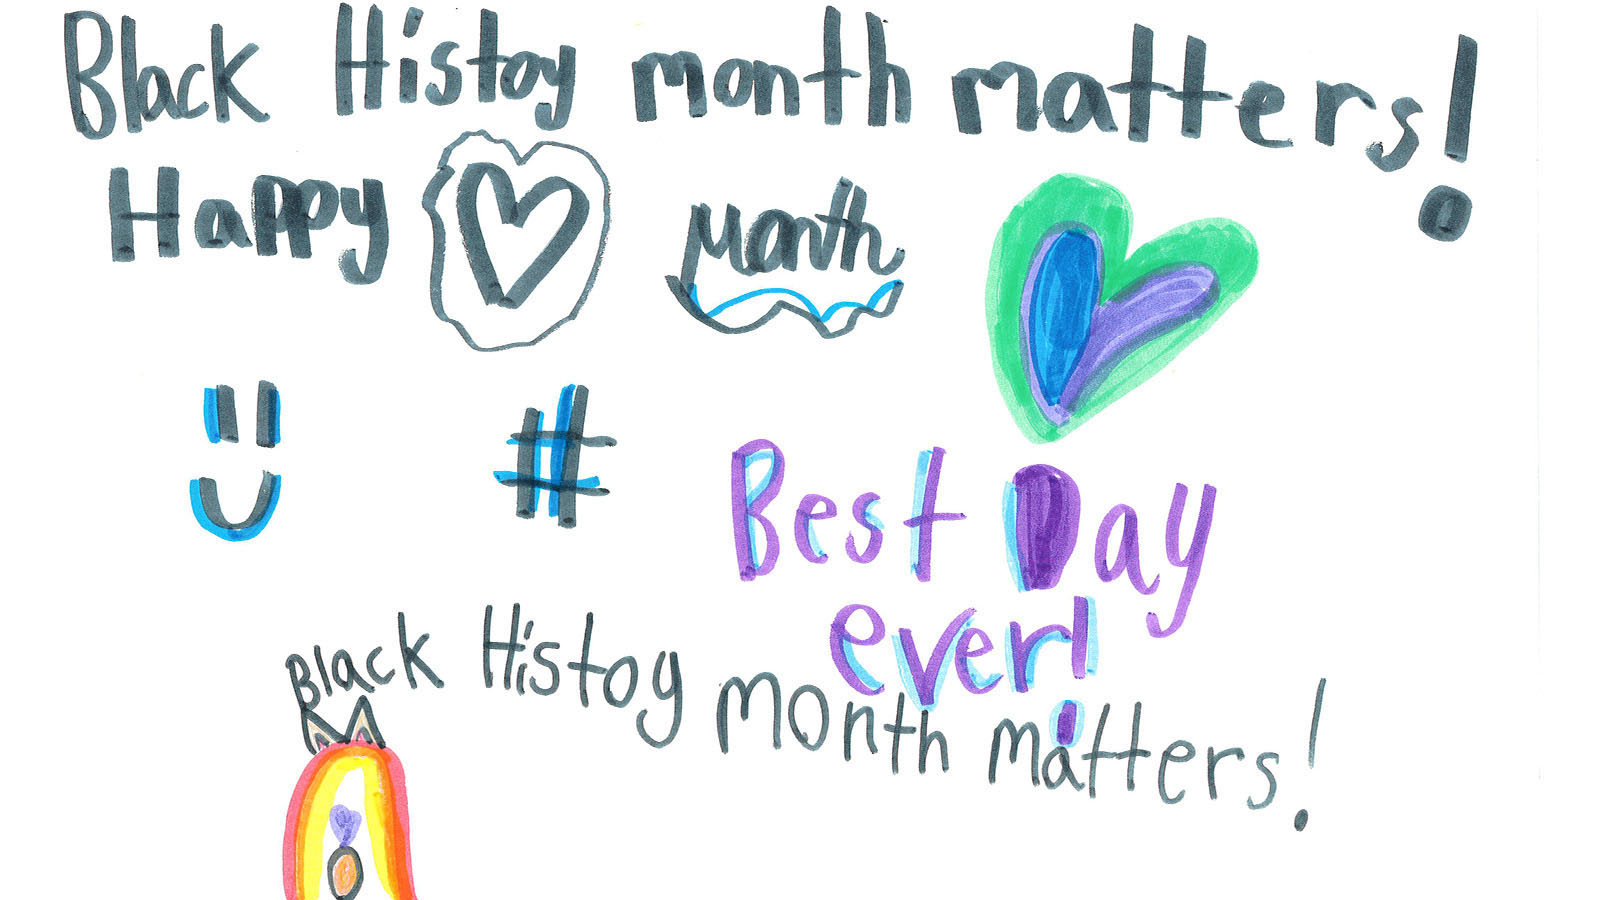 Black Histoy month matters!
Happy month
#
Best Day
ever!
Black Histoy month matters!